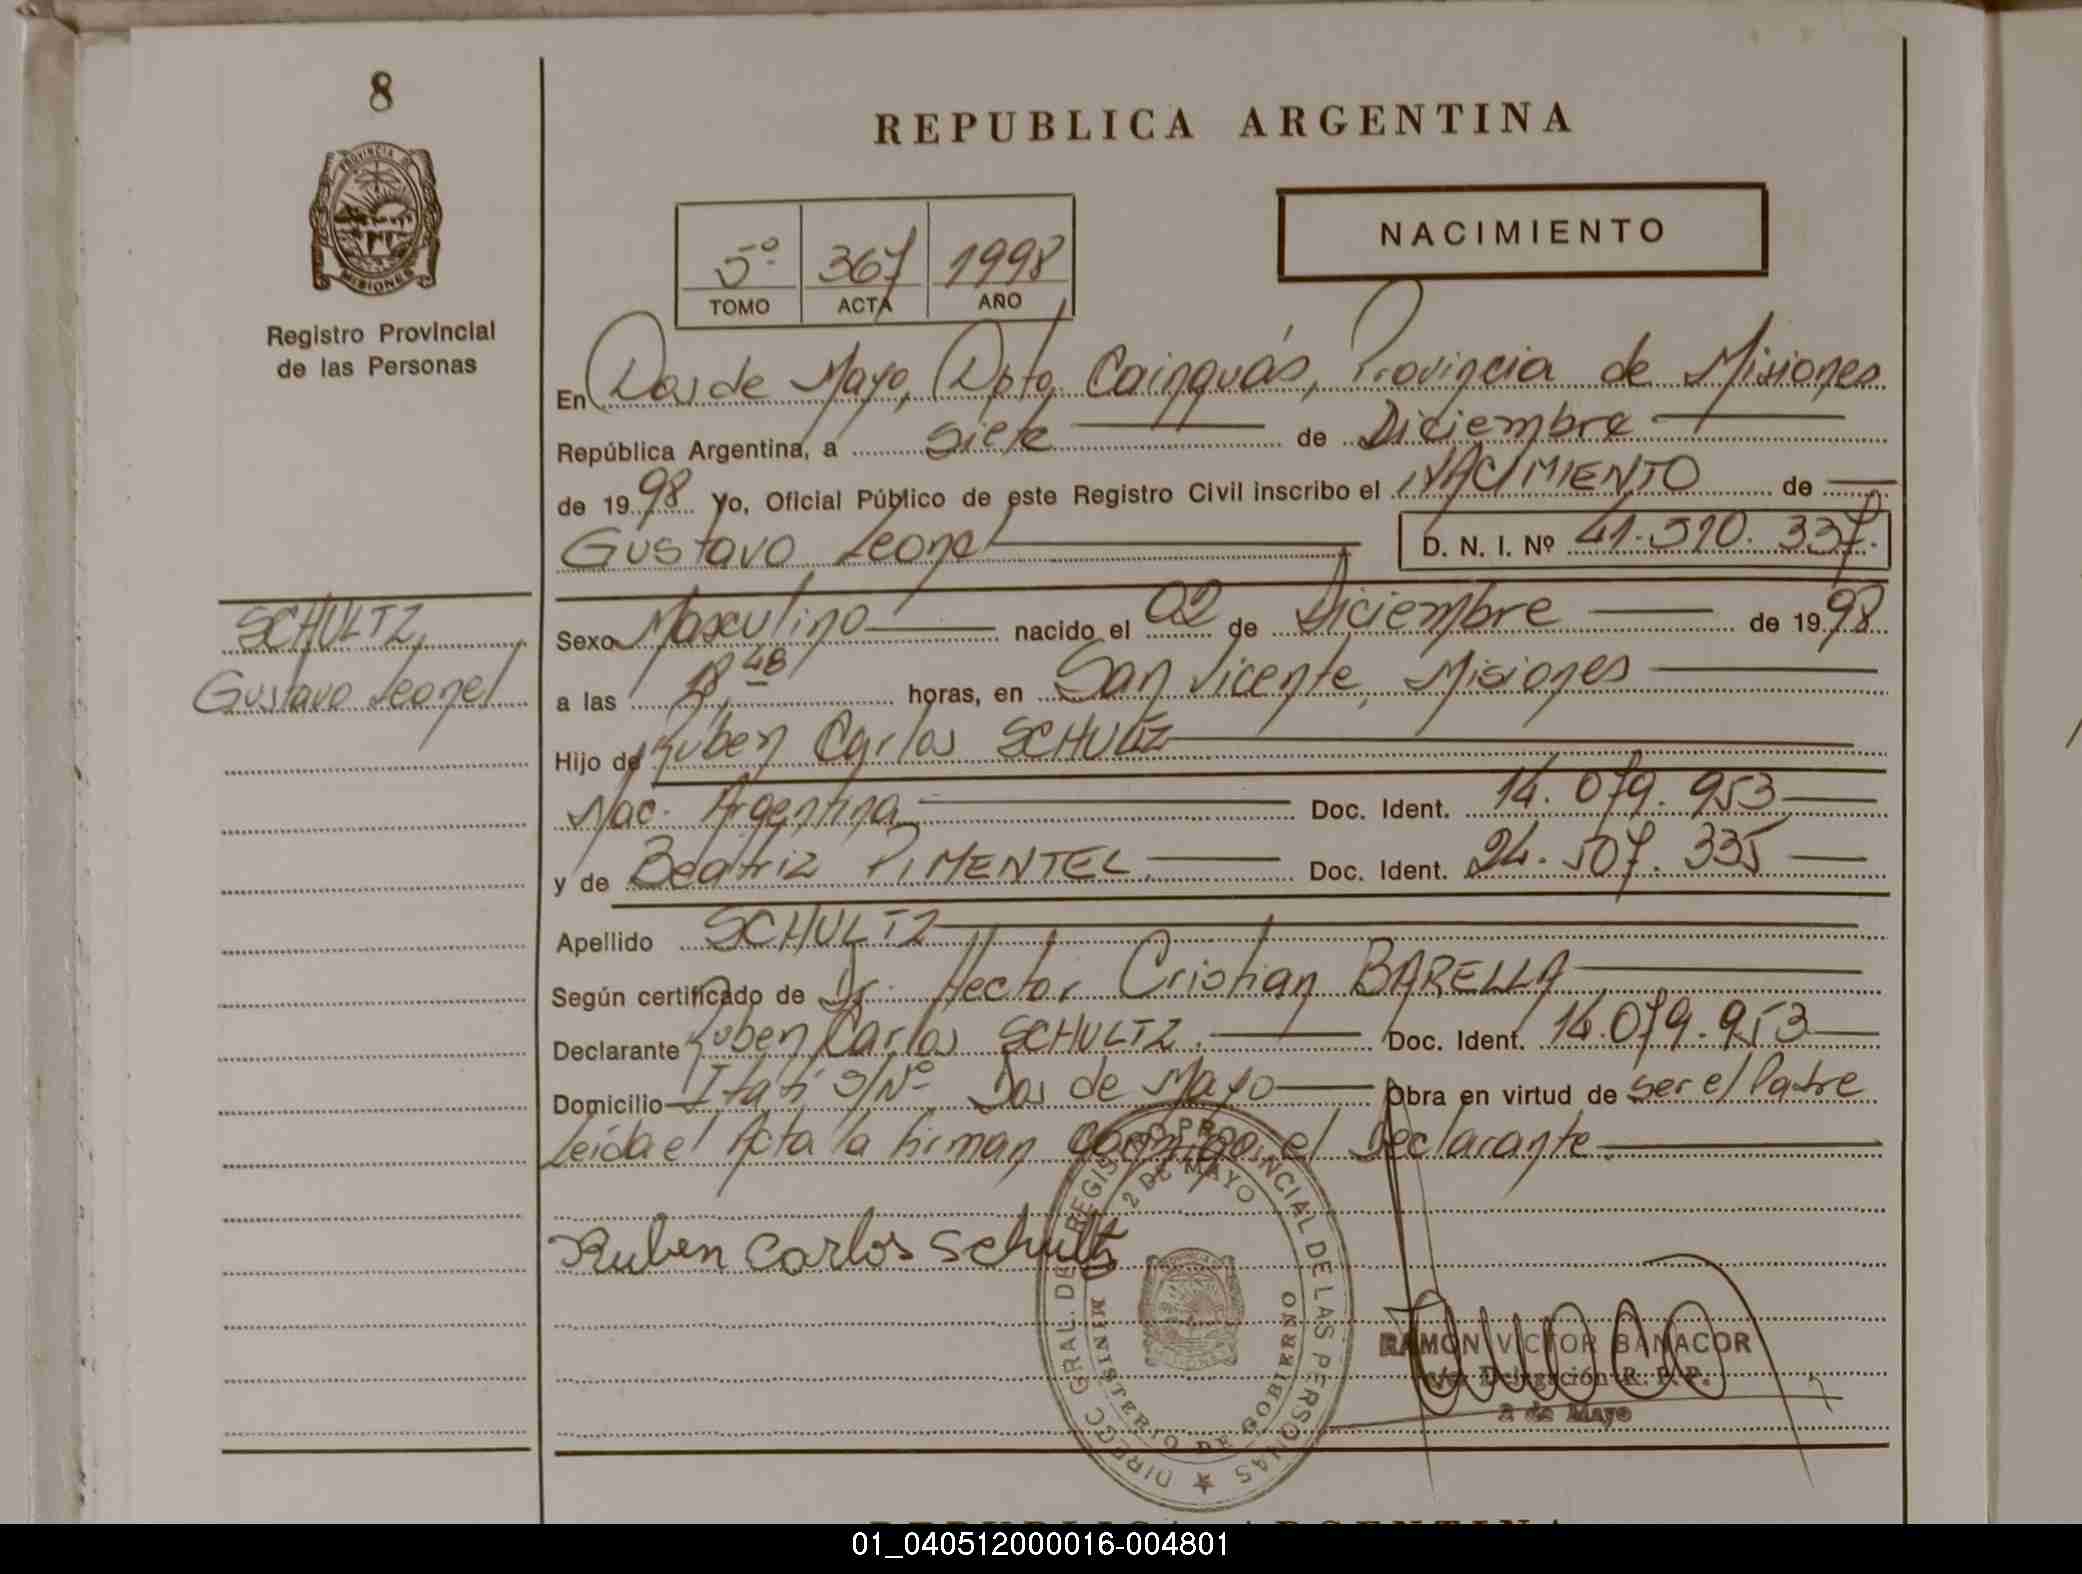 8
REPUBLICA ARGENTINA
PROVINCIA DE
MISIONES
Registro Provincial
de las Personas
NACIMIENTO
5º 367 1998
TOMO ACTA AÑO
En Dos de Mayo, Dpto. Cainguás, Provincia de Misiones
República Argentina, a siete de Diciembre
de 1998 Yo, Oficial Público de este Registro Civil inscribo el NACIMIENTO de
Gustavo Leonel D. N. I. Nº 41.510.337.
SCHULTZ,
Gustavo Leonel
Sexo Masculino nacido el 02 de Diciembre de 1998
a las 48 horas, en San Vicente, Misiones
Hijo de Ruben Carlos SCHULTZ
Nac. Argentina Doc. Ident. 14.079.953
y de Beatriz PIMENTEL Doc. Ident. 24.507.335
Apellido SCHULTZ
Según certificado de Dr. Hector Cristian BARELLA
Declarante Ruben Carlos SCHULTZ. Doc. Ident. 14.079.953
Domicilio Itatí S/Nº Dos de Mayo Obra en virtud de ser el Padre
Leída el Acta la firman conmigo el Declarante.
Ruben Carlos Schultz
DIRECC GRAL. DEL REGISTRO PROVINCIAL DE LAS PERSONAS
2 DE MAYO
MINISTERIO DE GOBIERNO
RAMON VICTOR BANACOR
Delegación R. P. P.
2 de Mayo
REPUBLICA ARGENTINA
01_040512000016-004801